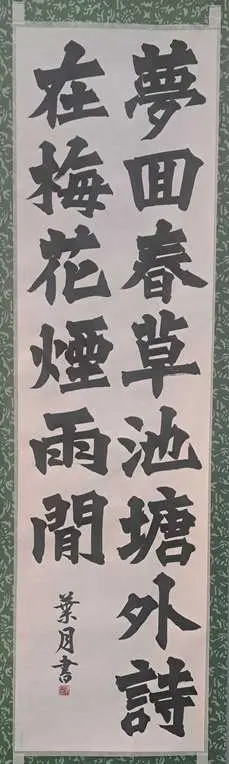 夢回春草池塘外詩
在梅花煙雨間
葉月書